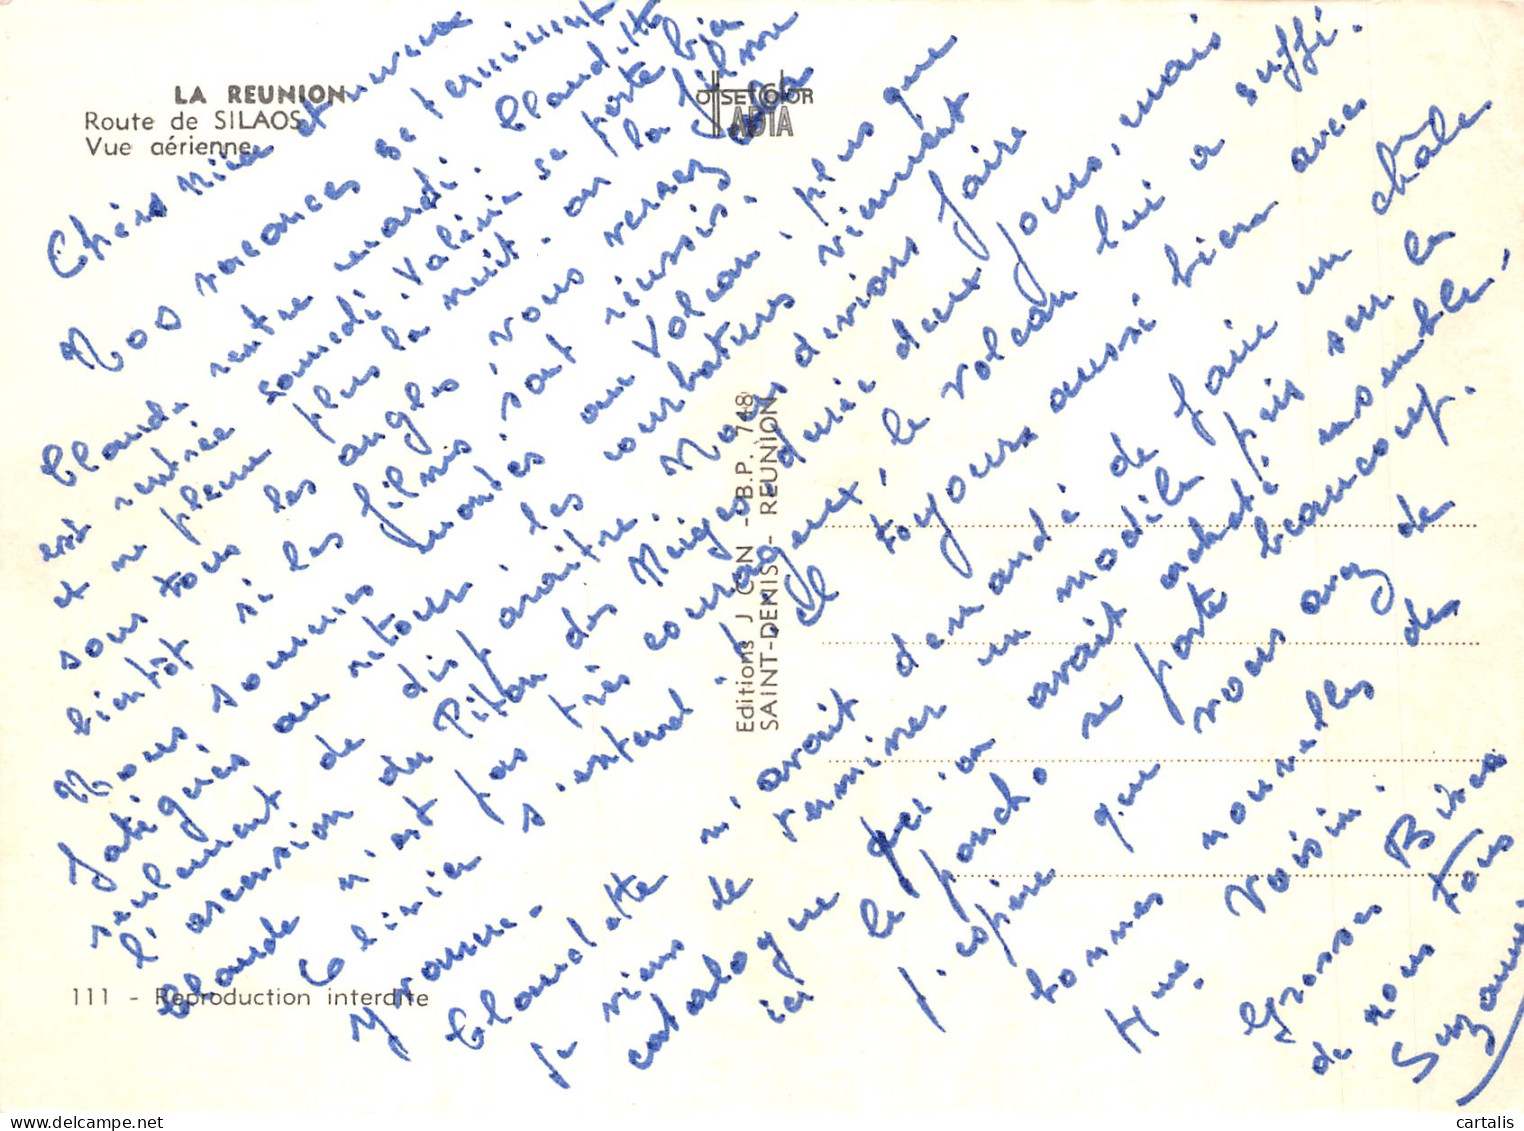 LA REUNION
Route de SILAOS
Vue aérienne
OFFSET COLOR
ADIA
Nos vacances se terminent
Claude rentre mardi. Claudette
est rentrée samedi. Valérie se porte bien
et ne pleure plus la nuit. on la filme
sous tous les angles, vous verrez
bientôt si les films sont réussis.
Nous sommes montés au Volcan, plus que
fatigués au retour les courbatures viennent
seulement de disparaître. Nous devions faire
l'ascension du Piton des Neiges durée deux jours, mais
Claude n'est pas très courageux, le volcan lui a suffi.
Olivier s'entend toujours aussi bien avec
Yvonne.
Claudette m'avait demandé de faire un châle
je viens de terminer un modèle pris sur la
catalogue qu'on avait acheté ensemble,
ici le poncho se porte beaucoup.
J'espère que vous avez de
bonnes nouvelles de
Mme Voisin.
Grosses Bises
de nous tous
Suzanne
Editions J CN - B.P. 748
SAINT-DENIS - REUNION
111 - Reproduction interdite
cartalis